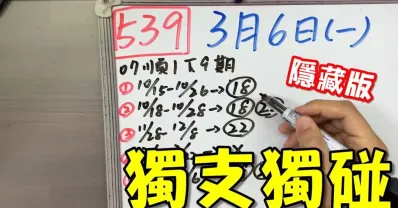 539 3月6日(一)
隱藏版
07順1下9期
① 10/15-10/26→18
② 10/18-10/28→18
③ 11/28 12/8→22
獨支獨碰